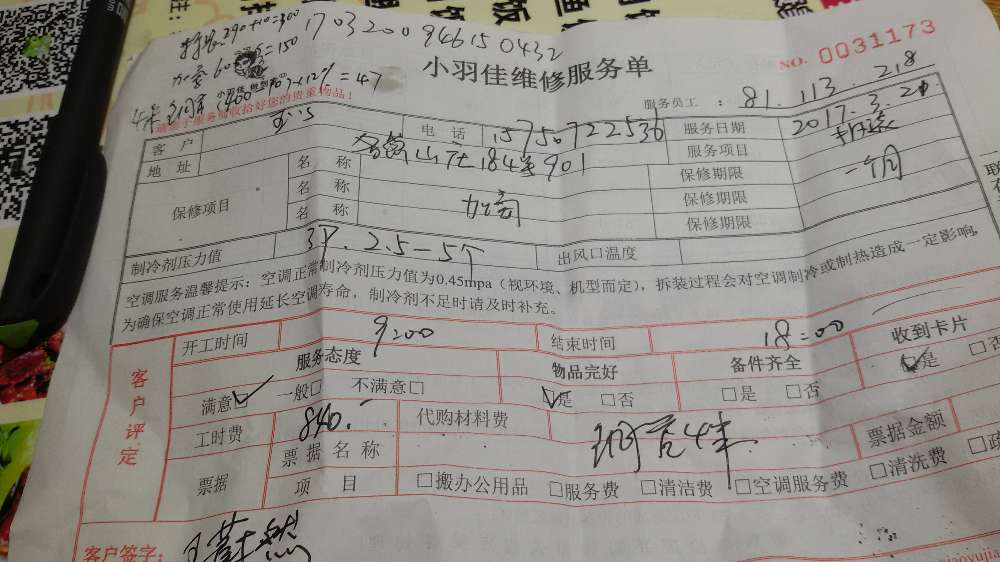 170320094615 0432
移装:290+10=300
加氟 60 =150
=47
小羽佳维修服务单
NO. 0031173
请您于服务前收拾好您的贵重物品!
服务员工 : 81.113.218
客户
电话 15750722536
服务日期 2017.3.20
地址 184 901
服务项目 移装
保修项目
名称
保修期限 一个月
名称 加氟
保修期限
名称
保修期限
制冷剂压力值 3P.2.5-5个
出风口温度
空调服务温馨提示:空调正常制冷剂压力值为0.45mpa(视环境、机型而定),拆装过程会对空调制冷或制热造成一定影响,
为确保空调正常使用延长空调寿命,制冷剂不足时请及时补充。
客户评定
开工时间 9:00
结束时间 18:00
服务态度
物品完好
备件齐全
收到卡片
满意□ 一般□ 不满意□
□是 □否
□是 □否
□是 □否
工时费 840.
代购材料费
票据金额
票据
票据名称
项目
□搬办公用品 □服务费 □清洁费 □空调服务费 □清洗费
客户签字: